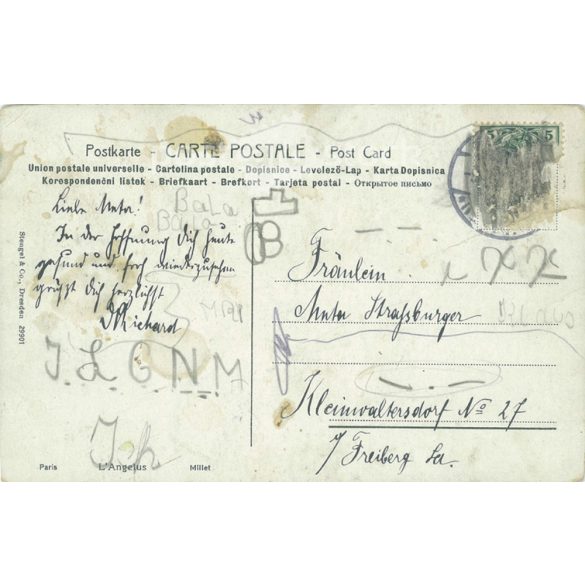 Postkarte - CARTE POSTALE - Post Card
Union postale universelle - Cartolina postale - Dopisnice - Levelező-Lap - Karta Dopisnica
Korespondenční listek - Briefkaart - Brefkort - Tarjeta postal - Открытое письмо
5 5
Liebe Meta!
In der Hoffnung Dich heute
gesund und froh wiederzusehen
grüßt Dich herzlichst
Richard
BaLa
BaLa
Fräulein
Meta Straßburger
Kleinwaltersdorf No 27
b/ Freiberg Sa.
J L G N M
Ich
Stengel & Co., Dresden 29901
Paris L'Angelus Millet